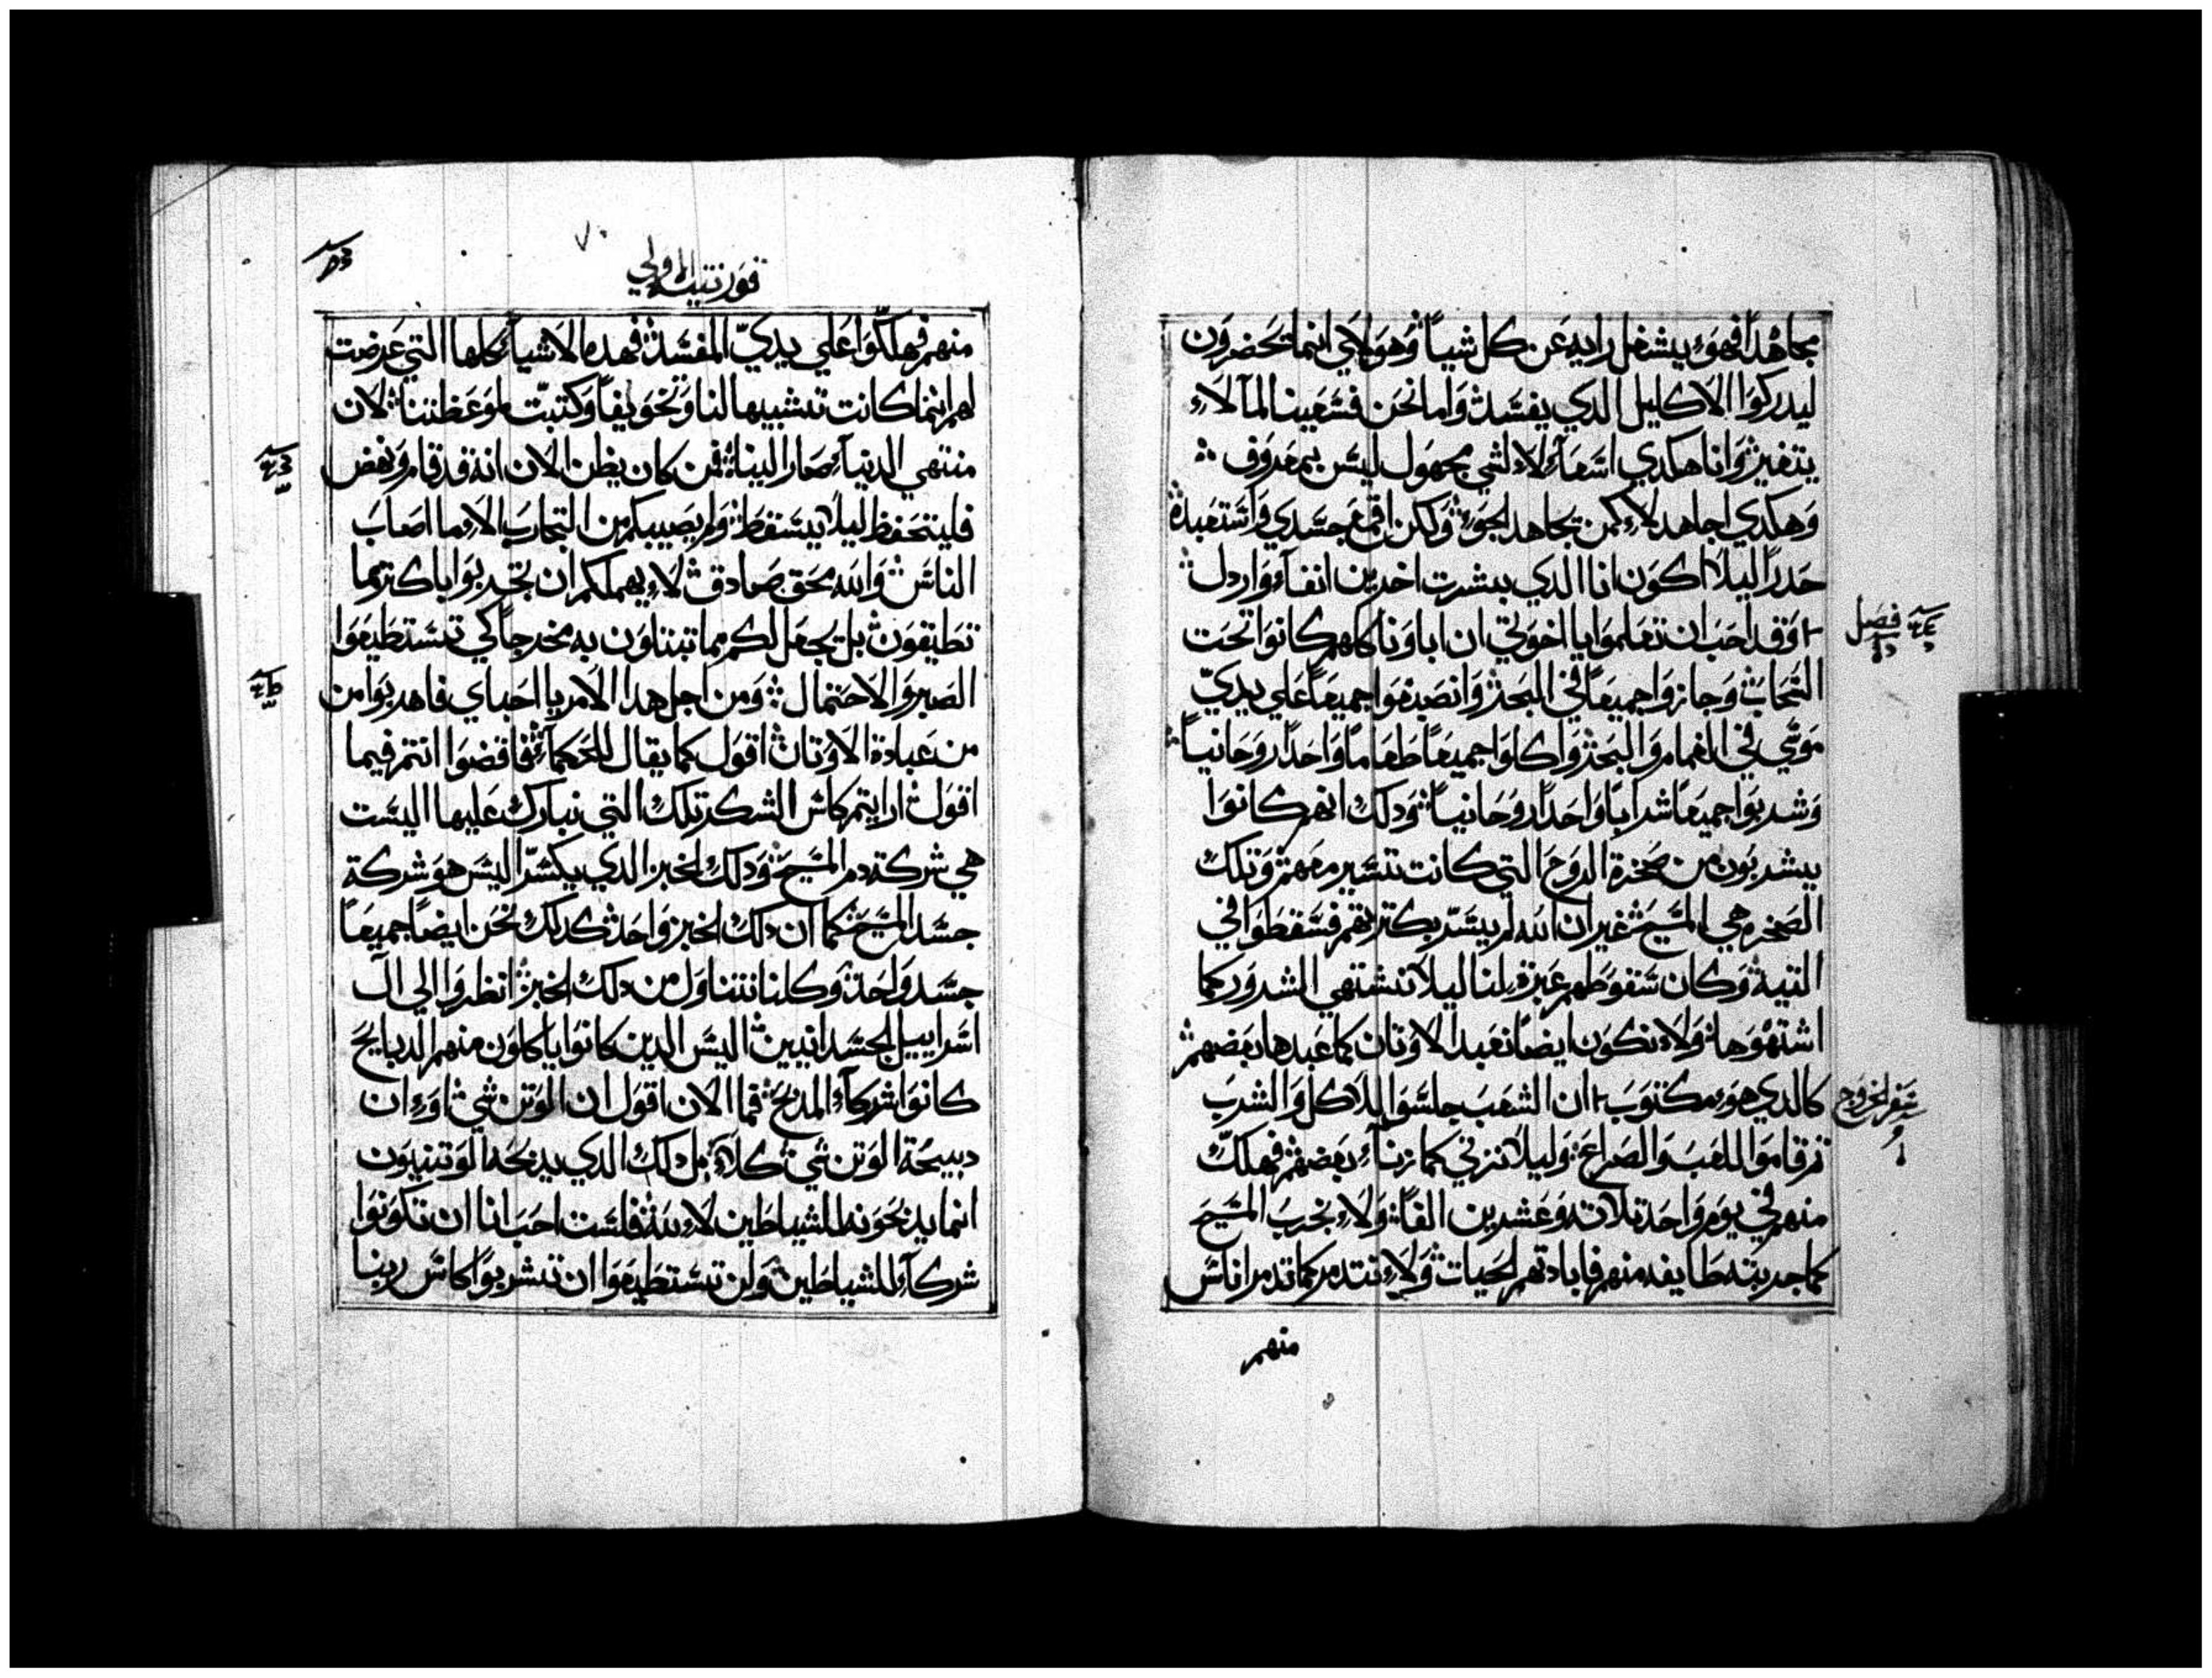 مجاهدًا فهو يشغل رايه عن كل شياً وهولاي انما يحضرون
ليدركوا الاكليل الدي يفسد وامانحن فسعينا لما لاء
يتغير وانا هكدي اسعاء لا لشي مجهول ليس بمعروف
وهكدي اجاهد لا كمن يجاهد الجو ولكن اقمع جسدي واستعبده
حدرًا ليلا اكون انا الدي بشرت اخرين انفاء واردل
فصل
وقد احب ان تعلموا يا اخوتي ان اباونا كلهم كانوا تحت
السحاب وجازوا جميعًا في البحر وانصبغوا جميعًا علي يديّ
موسي في الغمام والبحر واكلوا جميعًا طعامًا واحدًا روحانياً
وشربوا جميعًا شرابًا واحدًا روحانياً ودلك انهم كانوا
يشربون من صخرة الروح التي كانت تسير معهم وتلك
الصخره هي المسيح غير ان الله لم يسرّ بكترتهم فسقطوا في
التيه وكان سقوطهم عبرة لنا ليلا نشتهي الشرور كما
اشتهوها ولاء نكون ايضًا نعبد الاوتان كما عبدها بعضهم
سفر الخروج
كالدي هو مكتوب ان الشعب جلسوا للاكل والشرب
تم قاموا للعب والصراع وليلا نزني كما زناء بعضهم فهلك
منهم في يوم واحد تلاته وعشرين الفاً ولاء نجرب المسيح
كما جربته طايفه منهم فابادتهم الحيات ولاء نتدمر كما تدمر اناس
منهم
قورنتيه الاولي
منهم فهلكوا علي يديّ المفسد فهده الاشياء كلها التي عرضت
لهم انما كانت تشبيهًا لنا وتخويفاً وكتبتّ لموعظتنا لان
منتهي الدنياء صار الينا فمن كان يظن الان انه قد قام ونهض
فليتحفظ ليلا يسقط ولم يصيبكم من التجارب الاء ما اصاب
الناس والله بحق صادق لاء يهملكم ان تجربوا باكتر مما
تطيقون بل يجعل لكم مما تبتلون به مخرجاً كي تستطيعوا
الصبر والاحتمال ومن اجل هدا الامر يا احباي فاهربوا من
من عبادة الاوتان اقول كما يقال للحكماء فاقضوا انتم فيما
اقول ارايتم كاس الشكر تلك التي نبارك عليها اليست
هي شركة دم المسيح ودلك الخبز الدي يكسّر اليس هو شركة
جسد المسيح كما ان دلك الخبز واحد كدلك نحن ايضًا جميعًا
جسد واحد وكلنا نتناول من دلك الخبز انظروا الي ال
اسراييل الجسدانيين اليس الدين كانوا ياكلون منهم الدبايح
كانوا شركاء المدبح فما الان اقول ان الوتن شي او ان
دبيحة الوتن شي كلاء بل دلك الدي يدبحه الوتنيون
انما يدبحونه للشياطين لاء لله فلست احب انا ان تكونوا
شركاء للشياطين ولن تستطيعوا ان تشربوا كاس ربنا